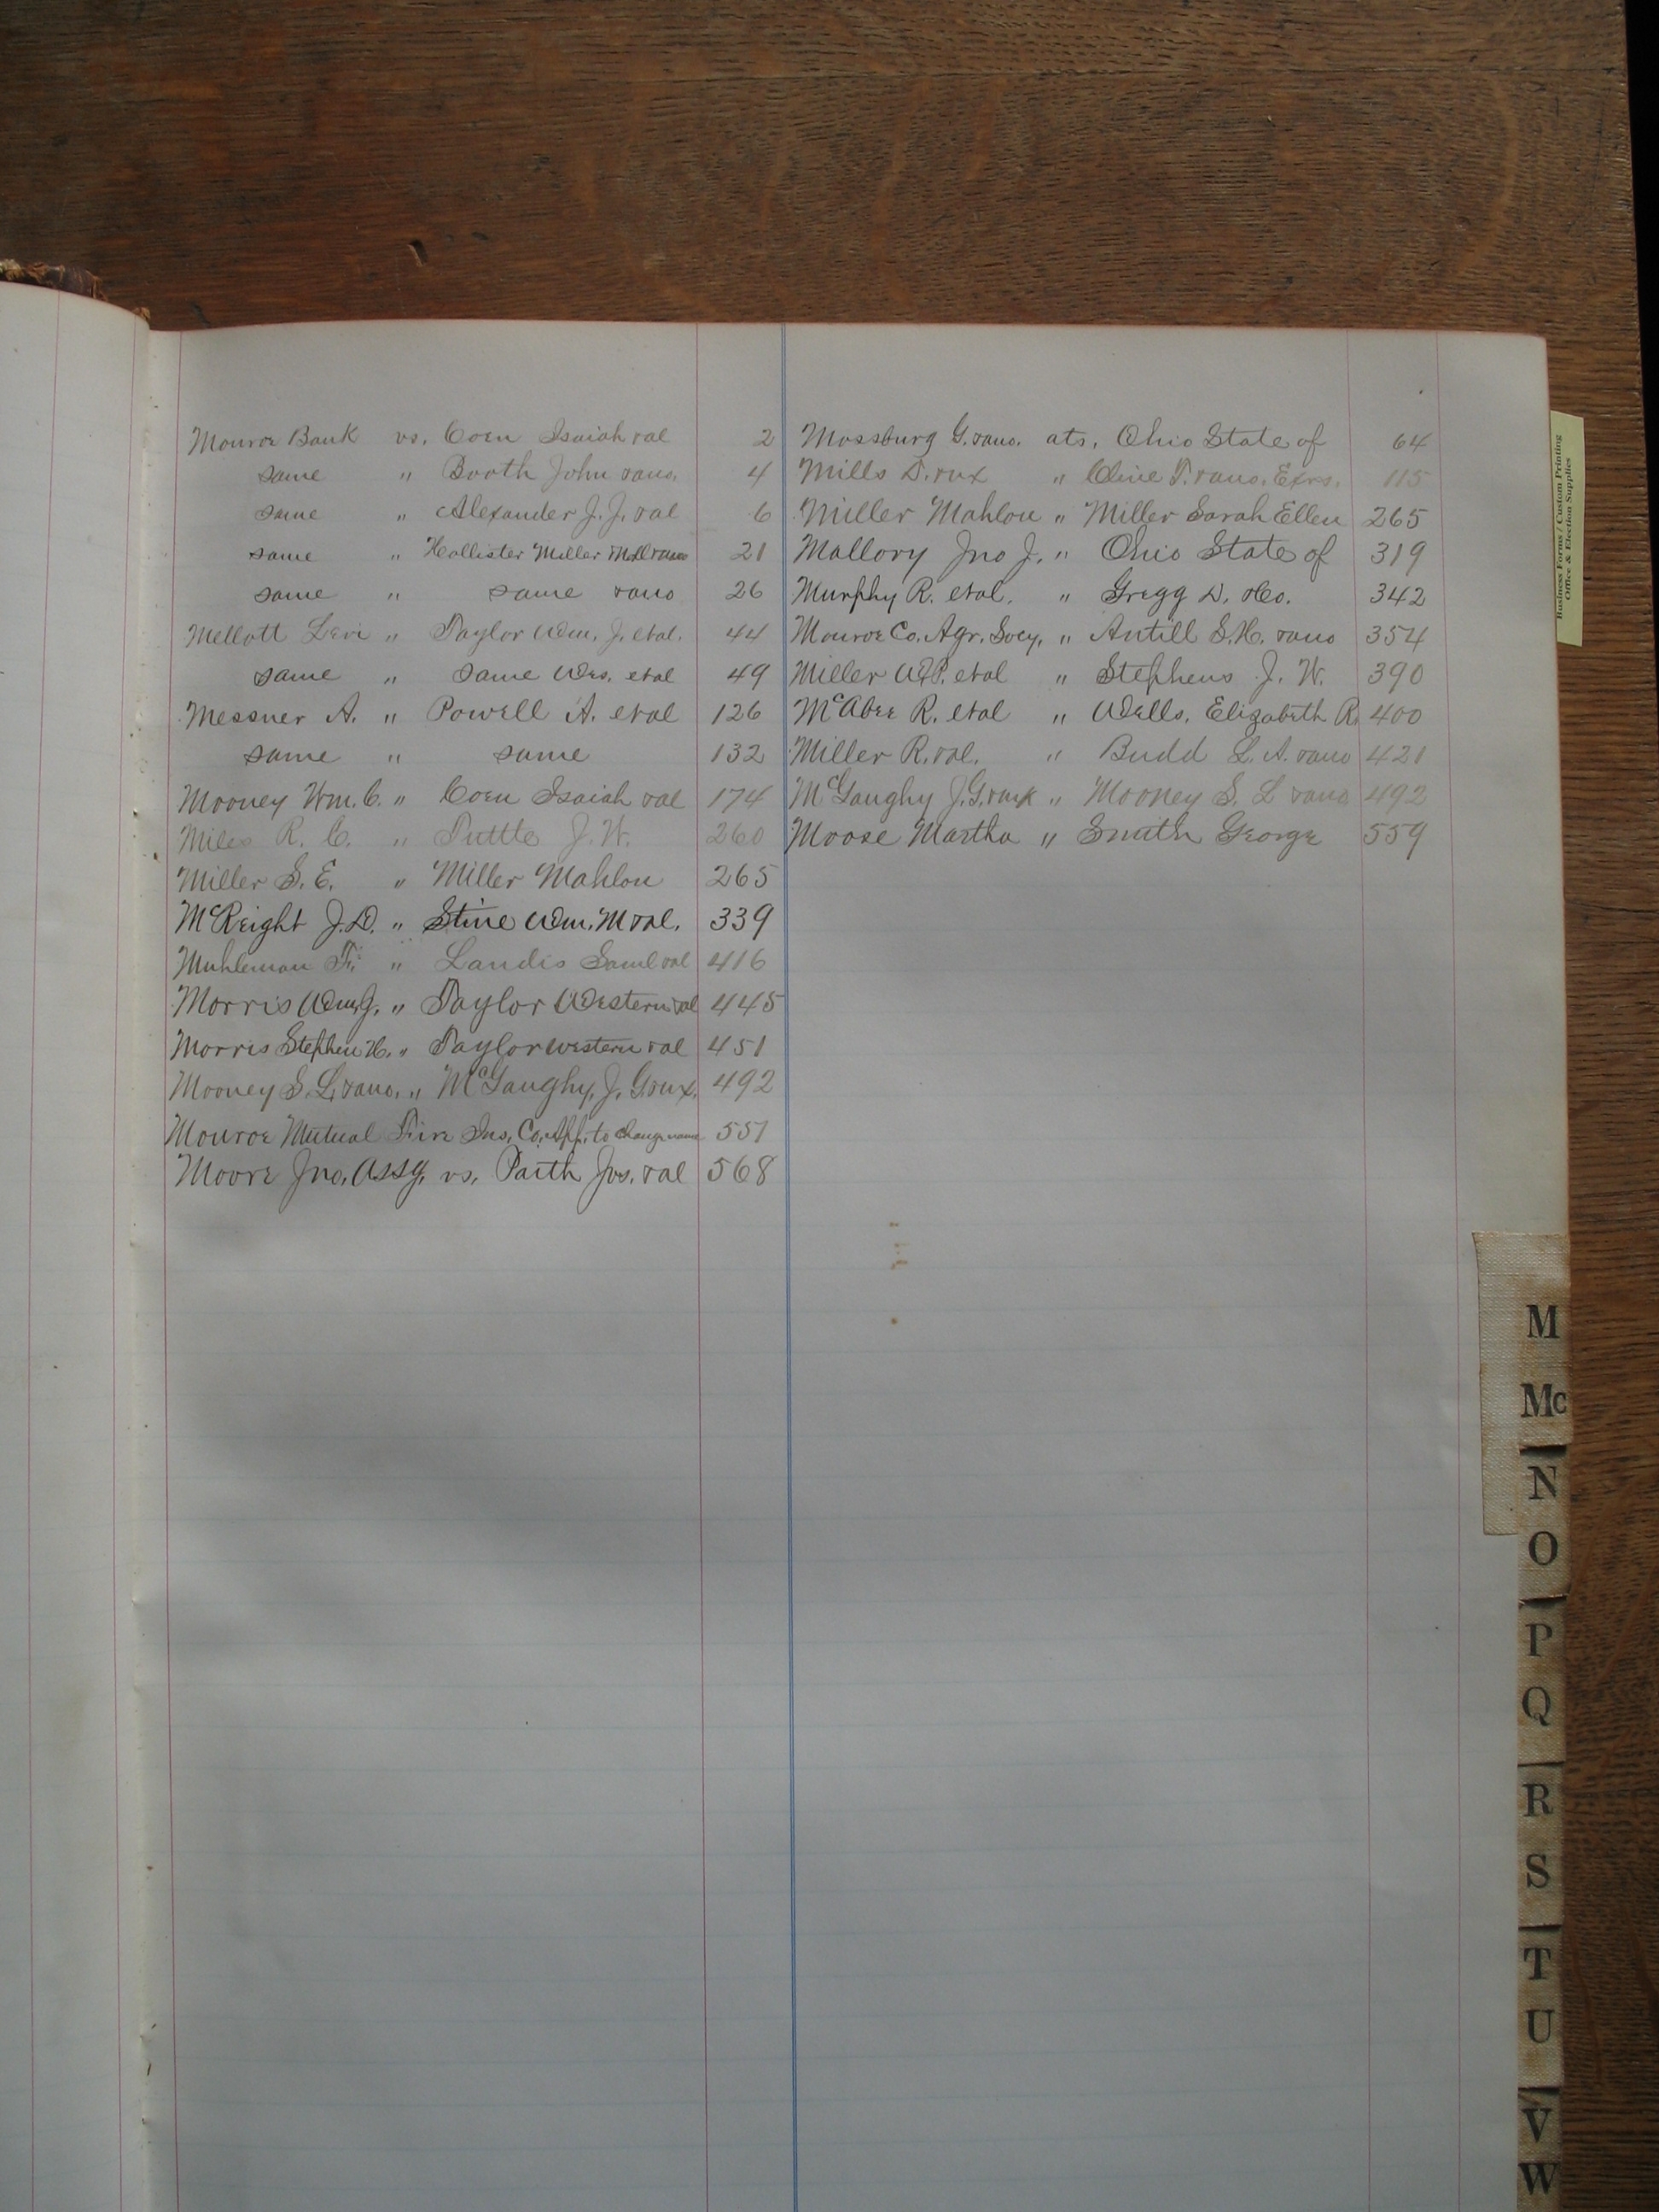 Monroe Bank vs. Coen Isaiah et al 2
same " Booth John & ano. 4
same " Alexander J. J. et al 6
same " Hollister Miller & ano 21
same " same & ano 26
Mellott Levi " Taylor Wm. J. et al. 44
same " same Wes. et al 49
Messner A. " Powell A. et al 126
same " same 132
Mooney Wm. C. " Coen Isaiah et al 174
Miles R. C. " Tuttle J. W. 260
Miller S. E. " Miller Mahlon 265
McKeight J. D. " Stine Wm. M et al. 339
Muhleman " Landis Saml et al 416
Morris Wm. G. " Taylor Western et al 445
Morris Stephen H. " Taylor Western et al 451
Mooney S. L. & ano. " McGaughy, J. G. & ux. 492
Monroe Mutual Fire Ins. Co. App. to change name 551
Moore Jno. Assg. vs. Paith Jos. et al 568
Mossburg G. & ano. ats. Ohio State of 64
Mills D. & ux " Cline T. & ano. Exrs. 115
Miller Mahlon " Miller Sarah Ellen 265
Mallory Jno J. " Ohio State of 319
Murphy R. et al. " Gregg D. & Co. 342
Monroe Co. Agr. Socy. " Antill S. H. & ano 354
Miller et al " Stephens J. W. 390
McAbee R. et al " Wells, Elizabeth R. 400
Miller R. et al. " Budd L. A. & ano 421
McGaughy J. G. & ux " Mooney S. L & ano 492
Moose Martha " Smith George 559
Business Forms / Custom Printing
Office & Election Supplies
M
Mc
N
O
P
Q
R
S
T
U
V
W